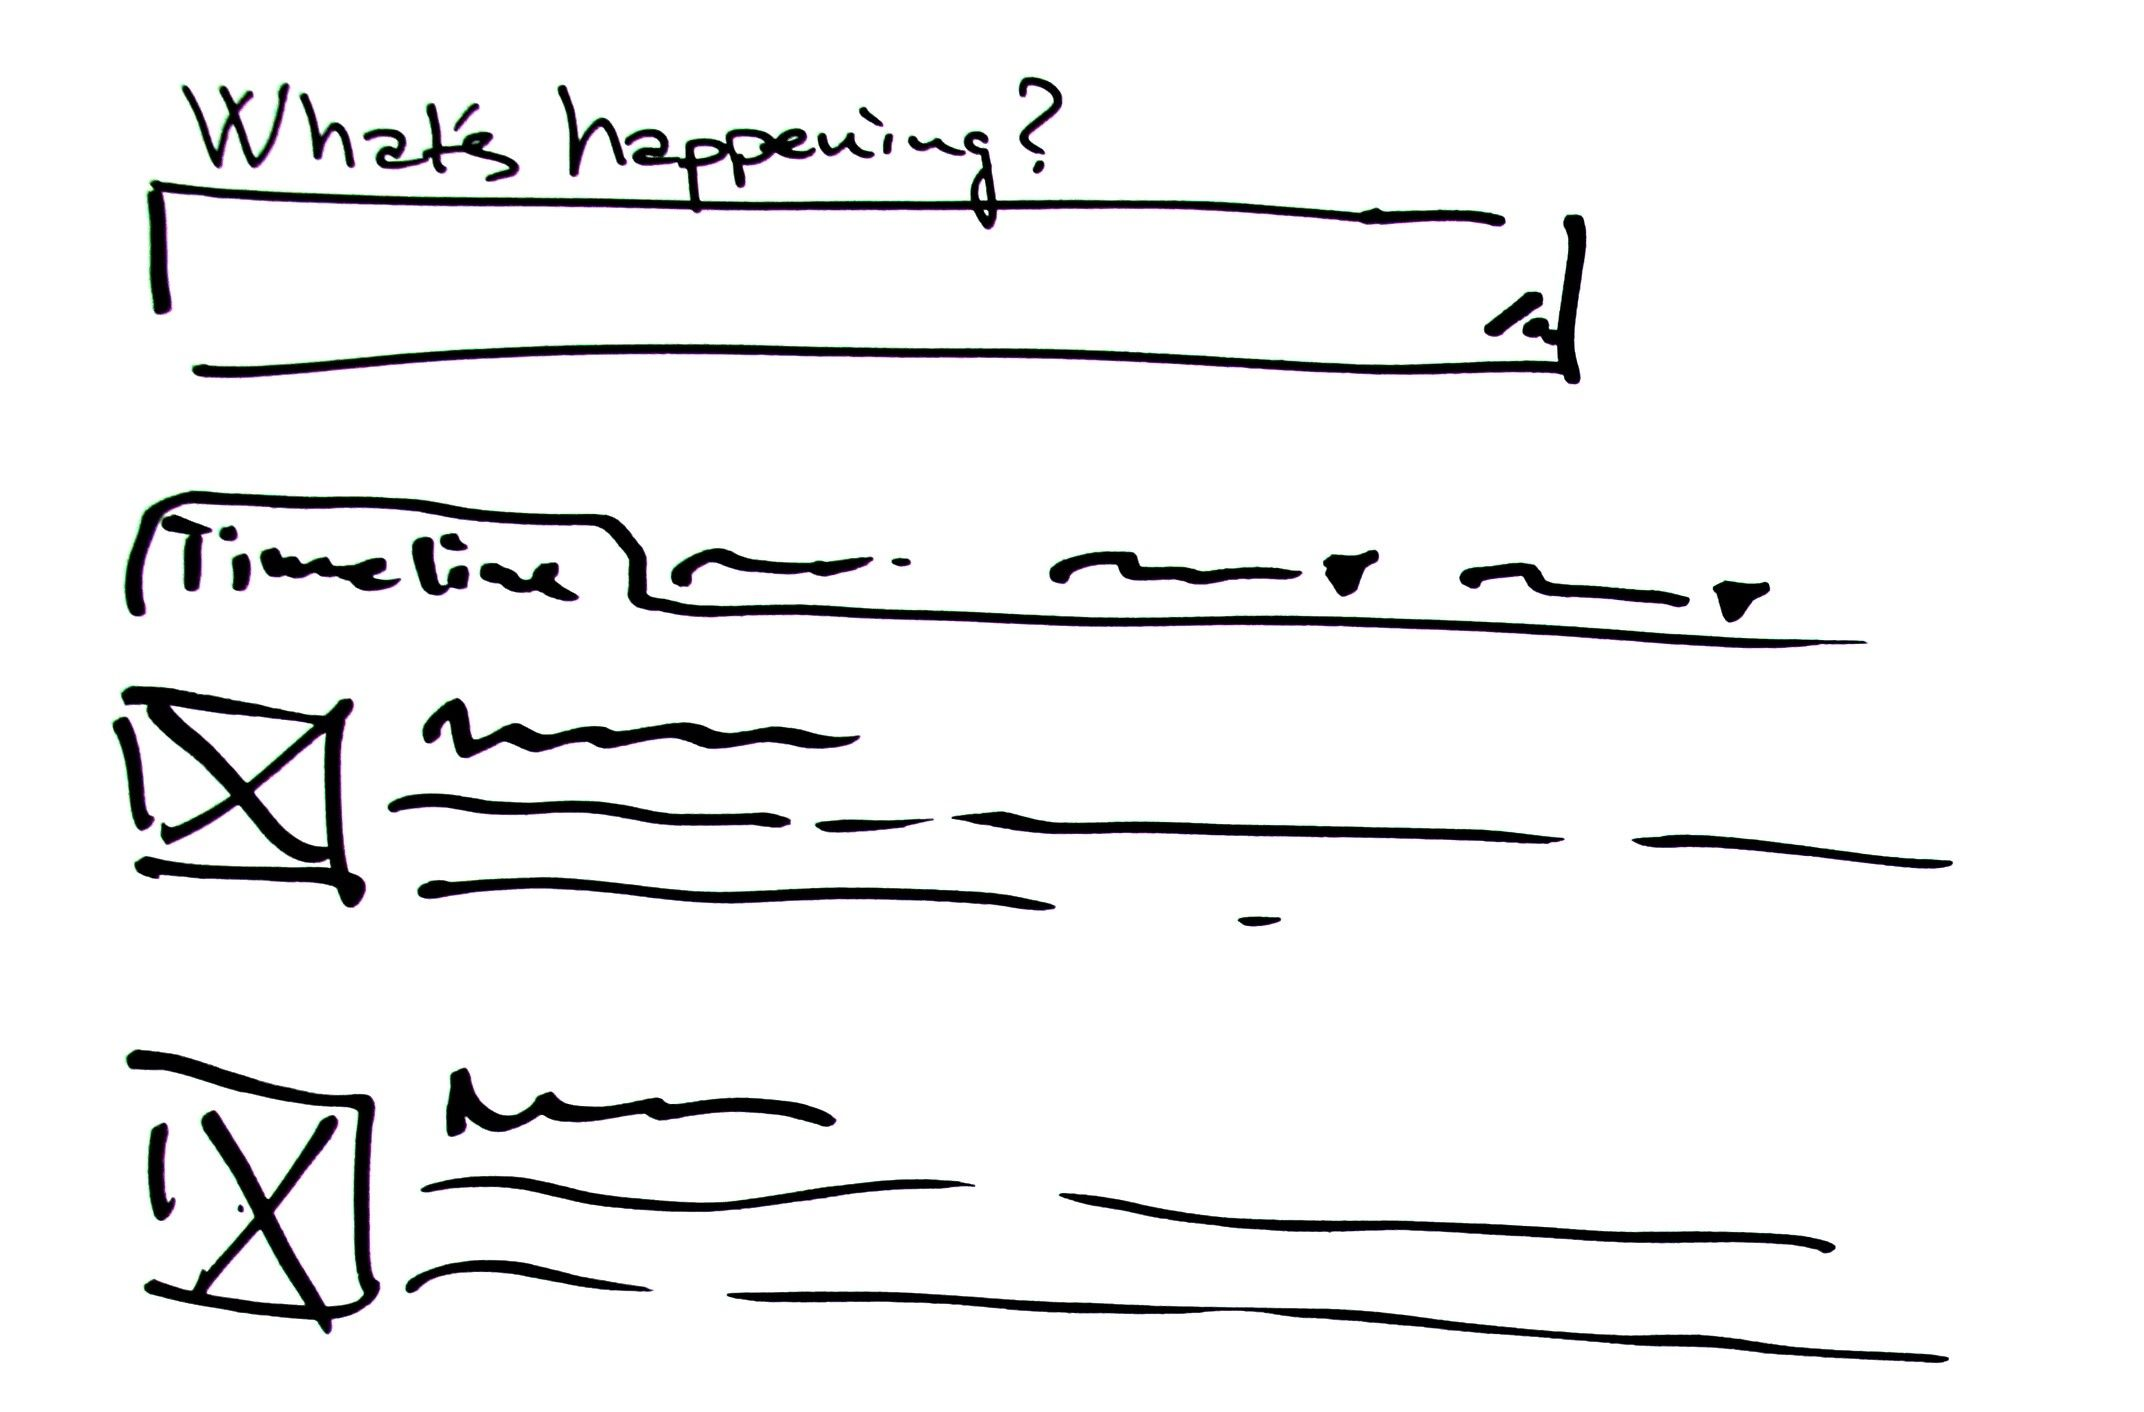 What's happening?
Timeline